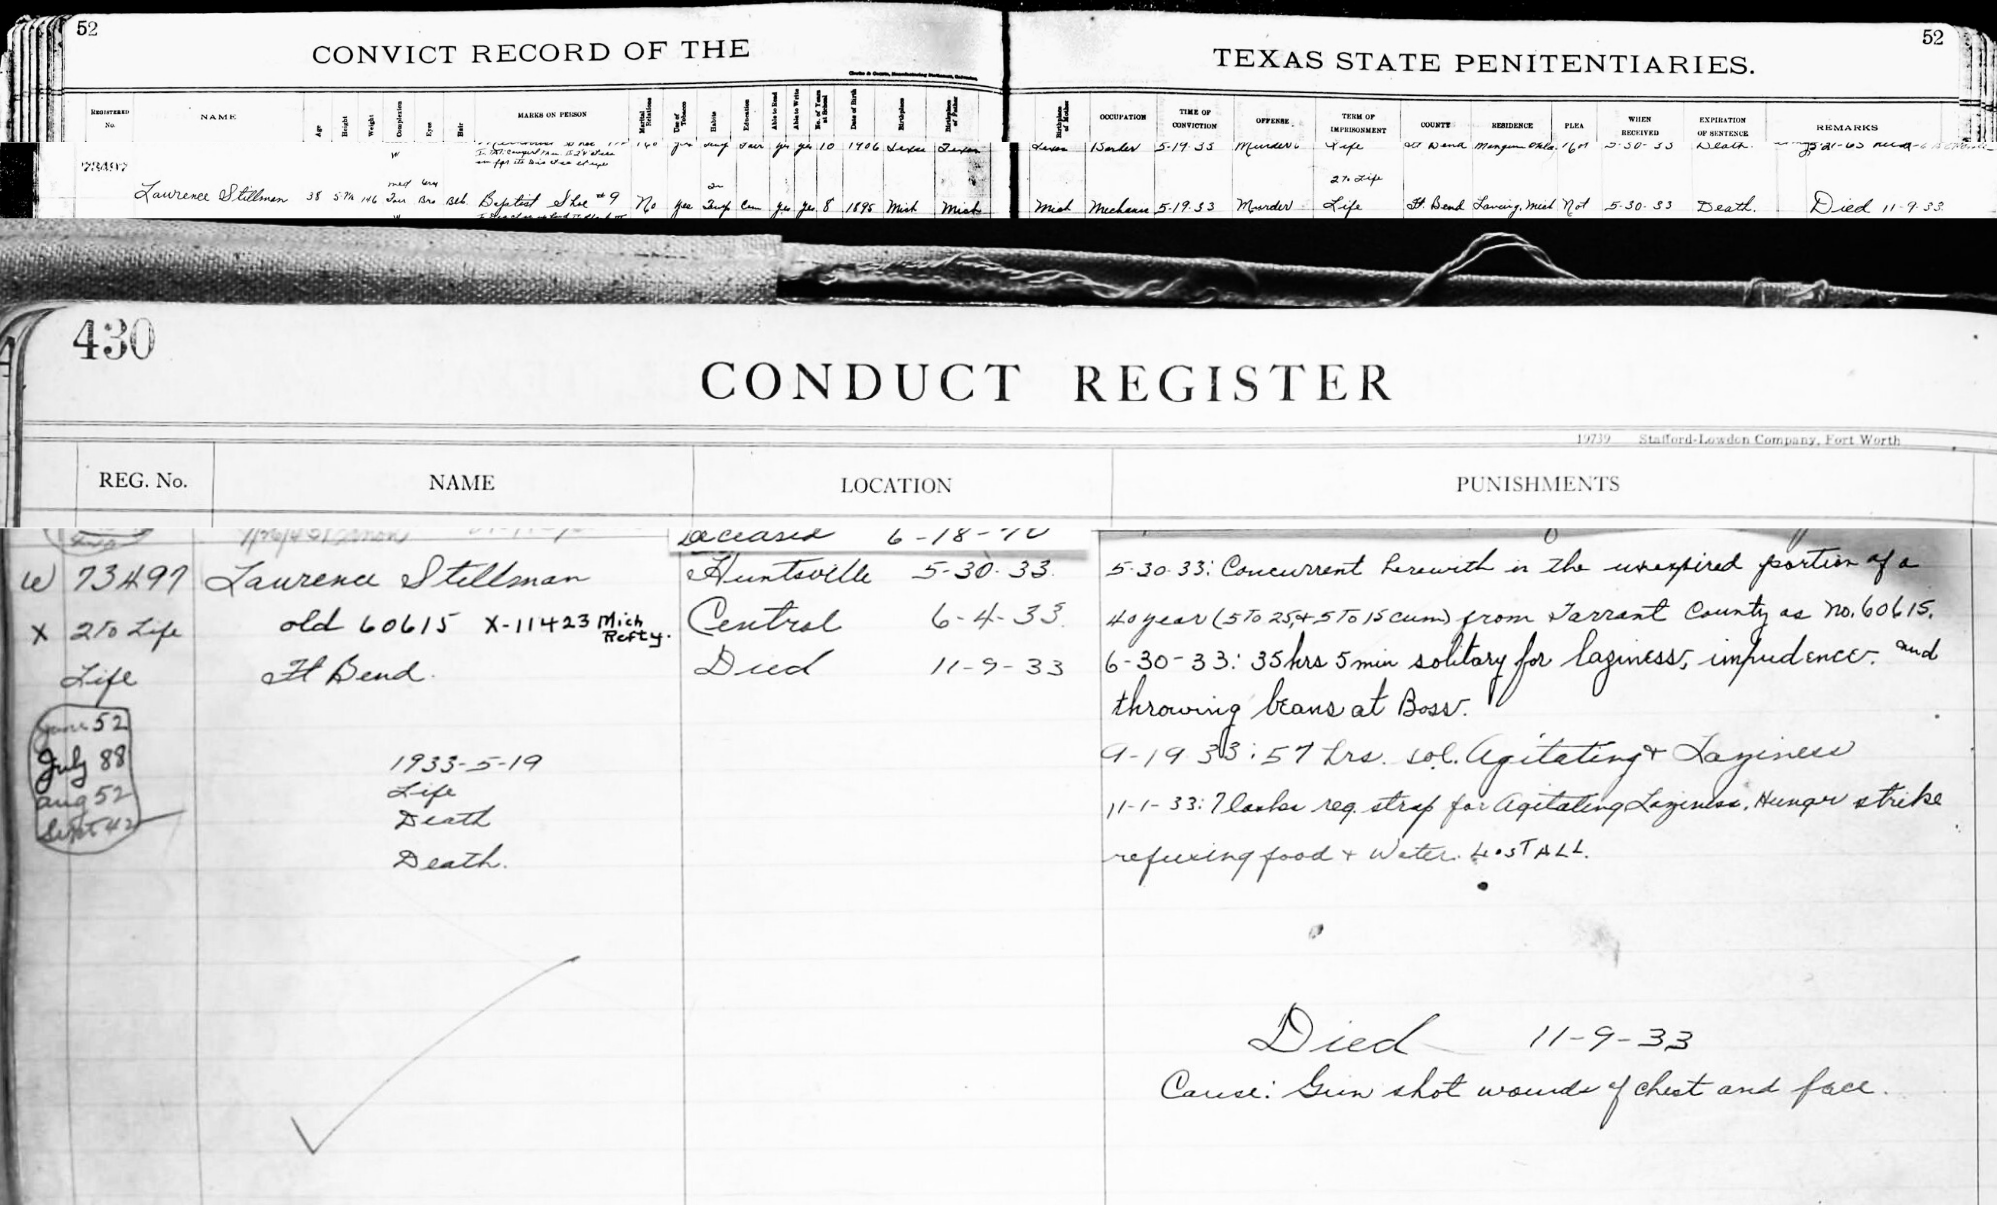 52
52
CONVICT RECORD OF THE
TEXAS STATE PENITENTIARIES.
REGISTERED No. NAME Age Height Weight Complexion Eyes Hair MARKS ON PERSON Marital Relations Use of Tobacco Habits Education Able to Read Able to Write No. of Years at School Date of Birth Birthplace Birthplace of Father Birthplace of Mother OCCUPATION TIME OF CONVICTION OFFENSE TERM OF IMPRISONMENT COUNTY RESIDENCE PLEA WHEN RECEIVED EXPIRATION OF SENTENCE REMARKS
10 1906 Texas Texas Texas 5-19-33 Murder Life Ft Bend Mangum Okla. 5-30-33 Death.
W
73497
2 to Life
med
Laurence Stillman 38 146 Fair Bro Blk Baptist Shoe #9 No yes Temp Com yes yes 8 1895 Mich Mich Mich Mechanic 5-19-33 Murder Life Ft. Bend Lansing, Mich Not 5-30-33 Death. Died 11-9-33
430
CONDUCT REGISTER
19739 Stafford-Lowdon Company, Fort Worth
REG. No. NAME LOCATION PUNISHMENTS
Deceased 6-18-40
W 73497 Laurence Stillman Huntsville 5-30-33. 5-30-33: Concurrent herewith is the unexpired portion of a
X 2 to Life old 60615 X-11423 Mich Refty. Central 6-4-33. 40 year (5 to 25, & 5 to 15 cum) from Tarrant County as No. 60615.
Life Ft Bend. Died 11-9-33 6-30-33: 35 hrs 5 min solitary for laziness, impudence. and
throwing beans at Boss.
June 52
July 88
Aug 52
Sept 42
1933-5-19
Life
Death
Death.
9-19-33: 57 hrs. sol. Agitating & Laziness
11-1-33: 7 lashes reg. strap for Agitating Laziness, Hunger strike
refusing food & Water. LOST ALL.
Died 11-9-33
Cause: Gun shot wounds of chest and face.